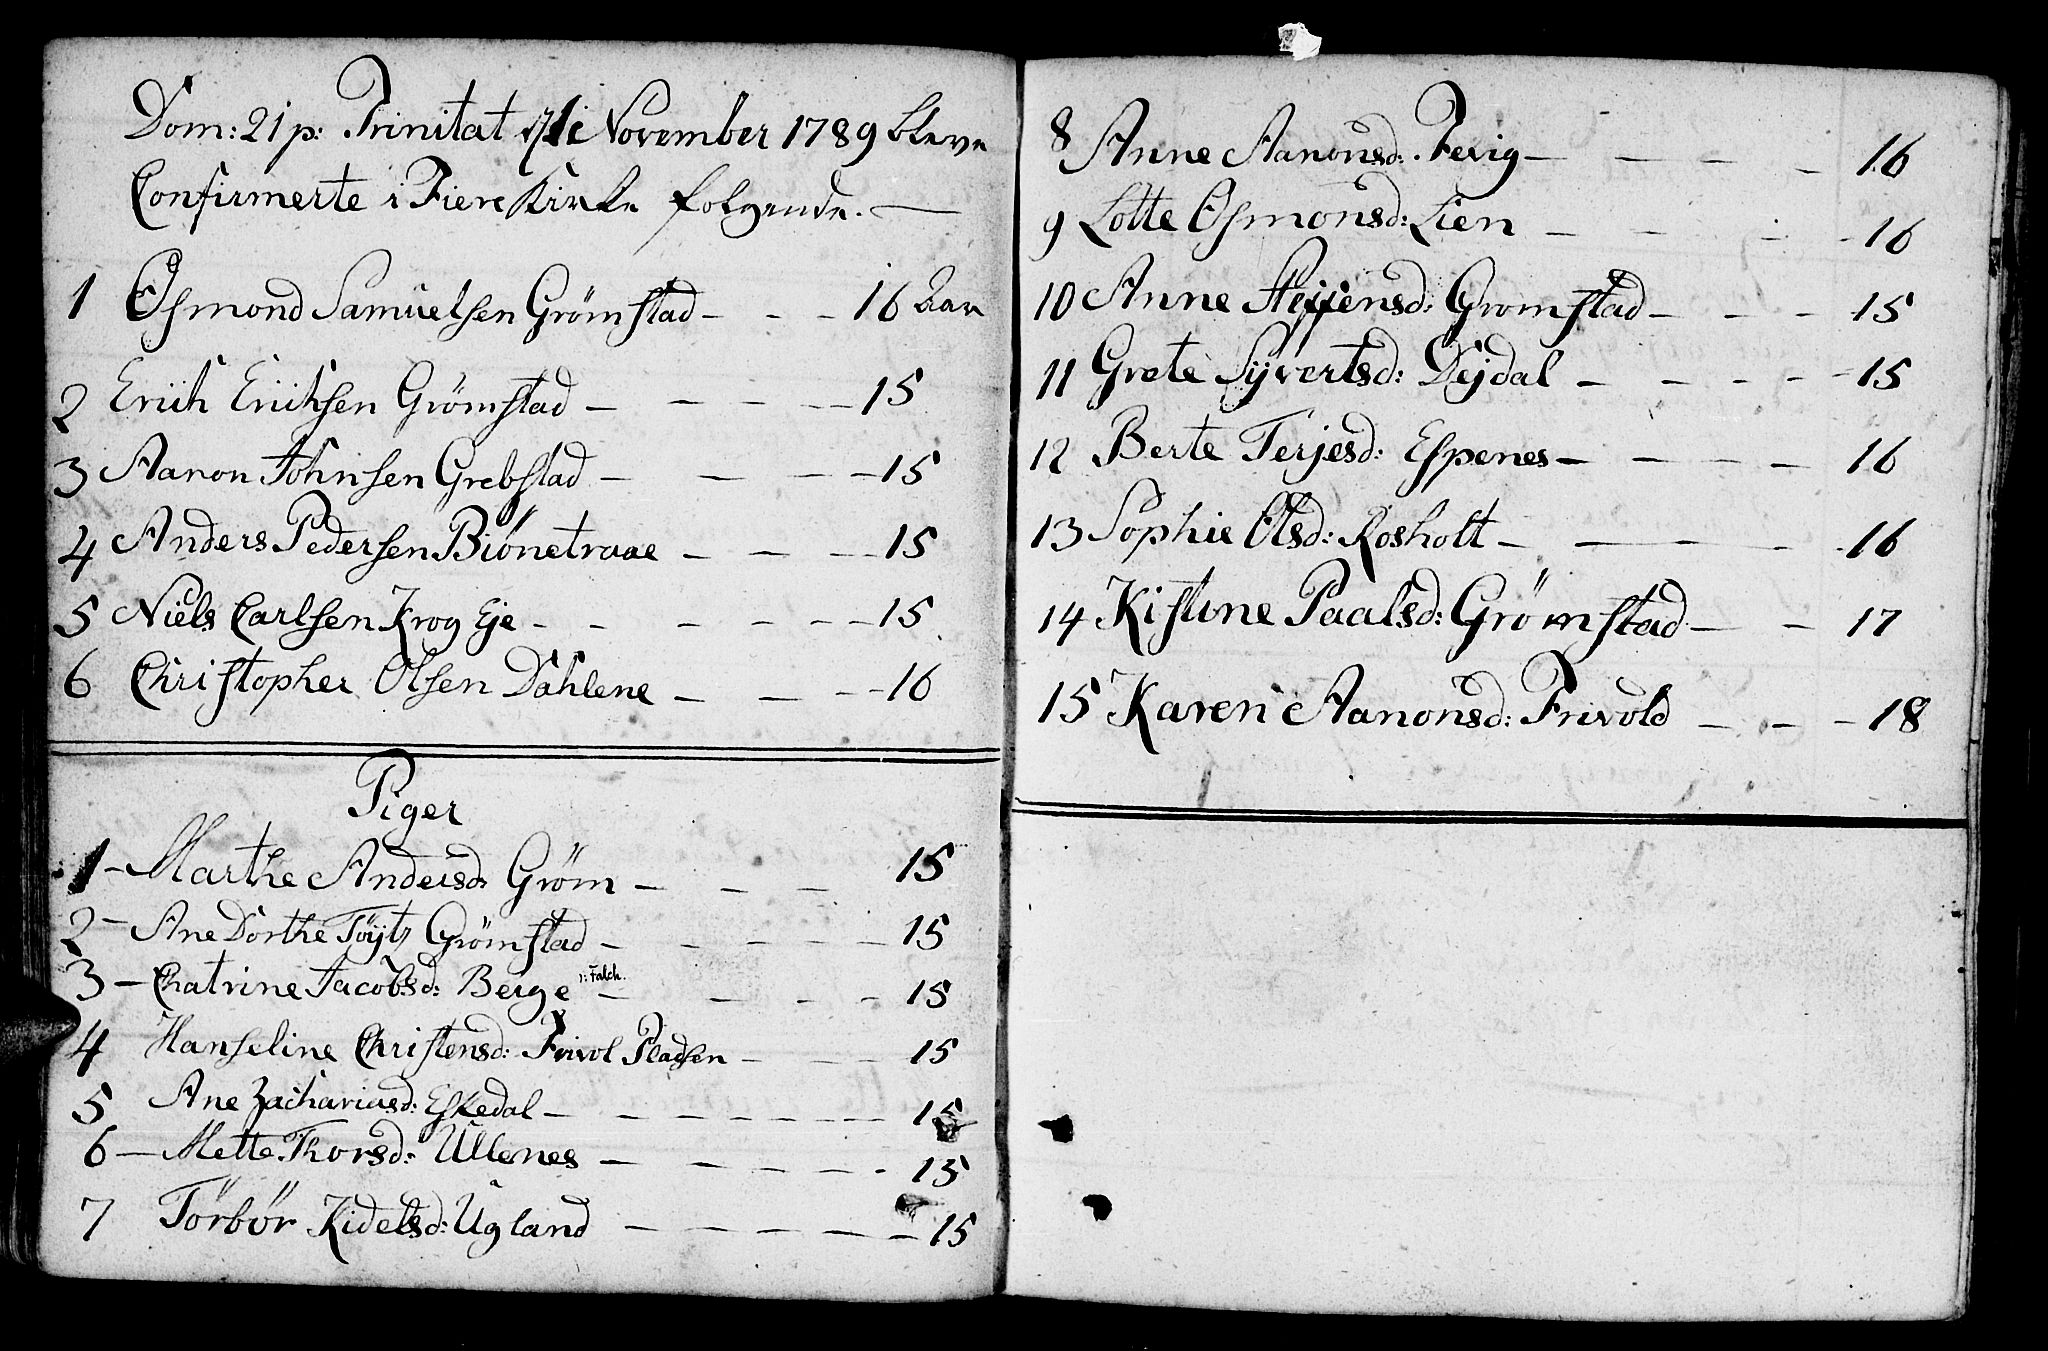 Dom: 21 p: Trinitat November 1789 bleve
Confirmerte i Fiere Kirke følgende. —
1 Osmond Samuelsen Grömstad - - - 16 Aar
2 Erich Erichsen Grömstad - - - - 15
3 Aanon Johnsen Grebstad - - - - 15
4 Anders Pedersen Biönetraae - - - 15
5 Niels Carlsen Krog Eje - - - - - 15
6 Christopher Olsen Dahlene - - - 16
Piger
1 - Marthe Andersd: Gröm - - - 15
2 - Ane Dorthe Töÿt Grömstad - - - - - 15
3 - Chatrine Jacobsd: Berge ɔ: Falch. - - - - 15
4 Hanseline Christensd: Frivol Pladsen - - - 15
5 Ane Zachariasd: Eskedal - - - - - - 15
6 - Mette Thorsd: Ullenes - - - - - 15
7 Törbör Kidelsd: Ugland - - - - - 15
8 Anne Aanonsd: Fevig - - - - 16
9 Lotte Osmonsd: Lien - - - - - 16
10 Anne d: Gromstad - - - 15
11 Grete Syvertsd: Dejdal - - - - - 15
12 Berte Terjesd: Espenes - - - - 16
13 Sophie Olsd: Rosholt - - - - - 16
14 Kistine Paalsd: Grömstad - - 17
15 Karen Aanonsd: Frivold - - - 18